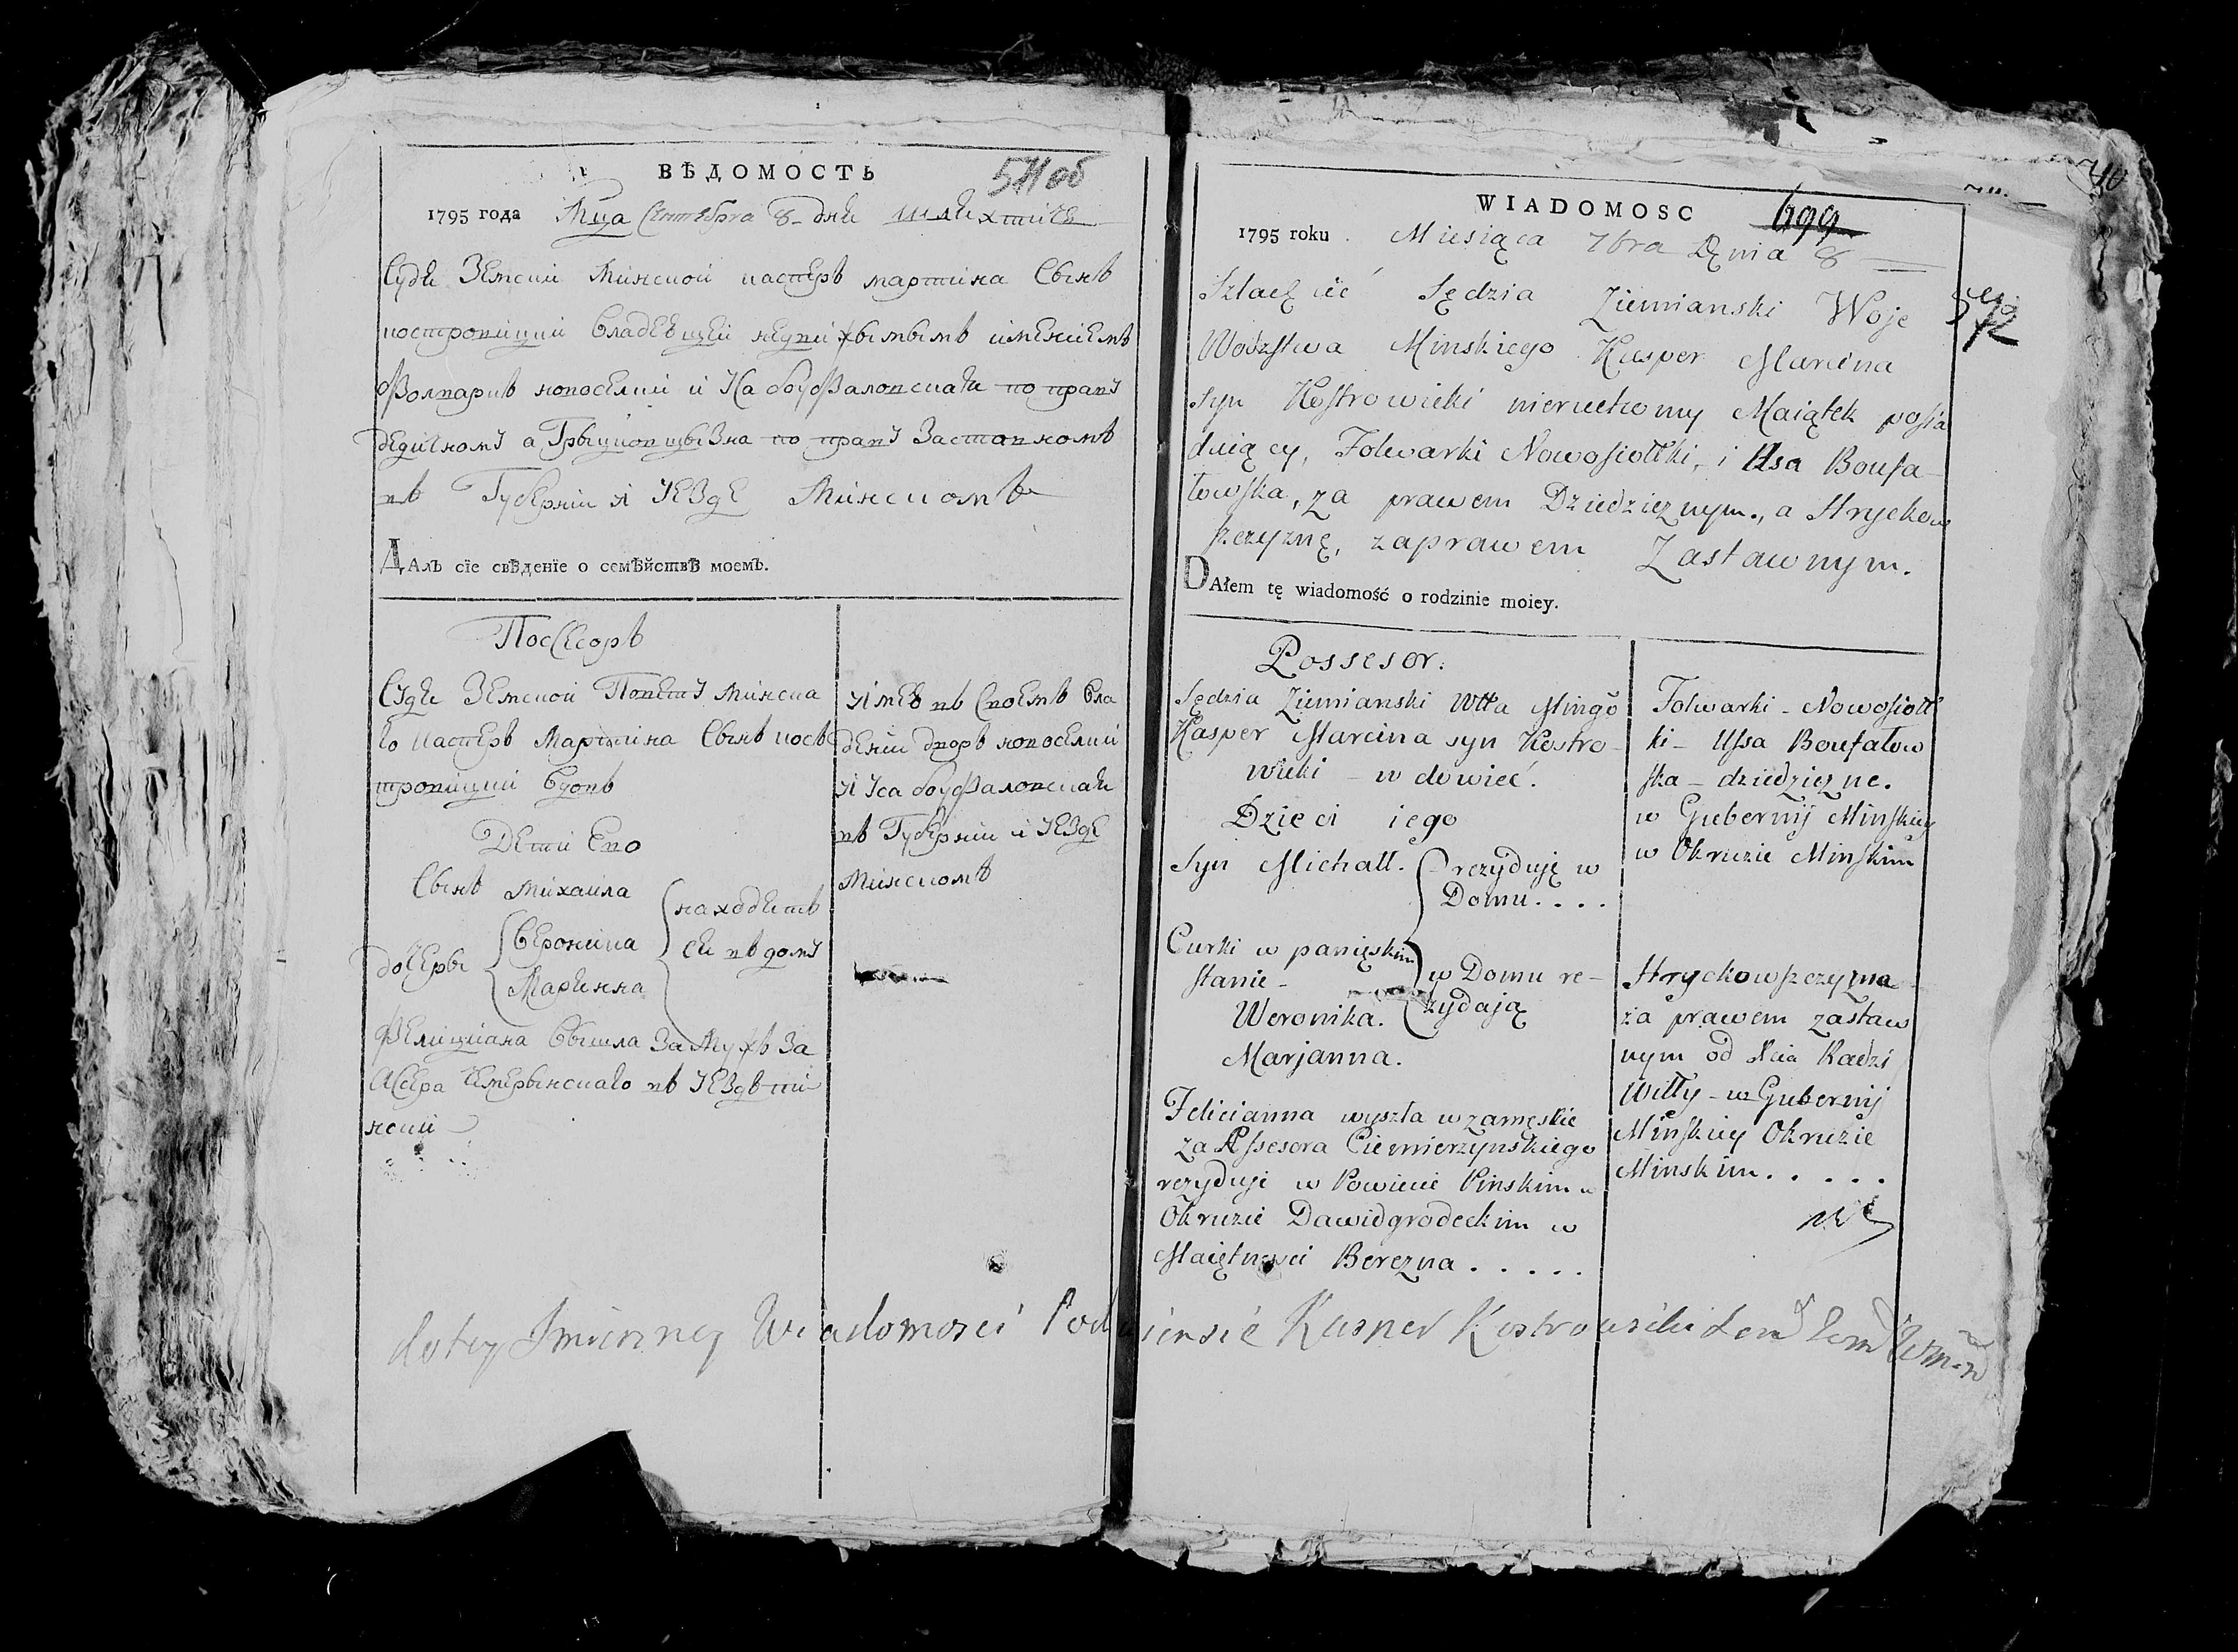 ВѢДОМОСТЬ
1795 года Мца Сентебра 8 дня шляхтичъ
Судя Земский Минской Каспер мартина Сынъ
костровицкий Владеющей недвижымымъ имениемъ
Фолварик новоселки и Уса боуфаловская по праву
дедичному а Грыцковщызна по праву Заставномъ
въ Губернии и Уезде Минскомъ
Далъ сїе свѣденїе о семѣйствѣ моемъ.
Поссесоръ
Судя Земской Повету Минска
го Каспер Мартина Сынъ кос
тровицкий Вдовъ
Дети Ево
Сынъ Михайла
находят
ся въ дому
дочеры
Вероника
Марянна
Фелициана Вышла За Мужъ За
Асесра Чемерынскаго въ Уездъ пи
нский
Имея въ Своемъ Вла
дении дворъ новоселки
и Уса боуфаловская
въ Губернии и Уезде
Минскомъ
WIADOMOSC 699
1795 roku Miesiąca 7bra Dnia 8
Szlachcić Sędzia Ziemianski Woje
Wodzstwa Minskiego Kasper Marcina
syn Kostrowicki nieruchomy Maiątek posia
daiący, Folwarki Nowosiołki, i Usa Boufa
łowska, za prawem Dziedzicznym, a Hryckow
szczyznę, za prawem Zastawnym.
DAłem tę wiadomość o rodzinie moiey.
Possesor.
Sędzia Ziemianski Wtta Mingo
Kasper Marcina syn Kostro-
wicki - wdowieć.
Dzieci iego
Syn Michałł. rezyduję w
Domu. . . .
Curki w panięskim
stanie -
w Domu re-
zydają
Weronika.
Marjanna.
Felicianna wyszła w zamęskie
za Assesora Ciemierzynskiego
rezyduje w Powiecie Pinskim w
Okruzie Dawidgrodeckim w
Maiętnosci Berezna . . . . .
Folwarki - Nowosioł
ki - Ussa Boufałow
ska - dziedziczne.
w Gubernij Minskiey
w Okruzie Minskim
Hryckowszczyzna
za prawem zastaw
nym od Xcia Radzi
Wiłły - w Gubernij
Minskiey Okruzie
Minskim. . . . .
do tey Imienney Wiadomosci Podpisuie się Kasper Kostrowicki